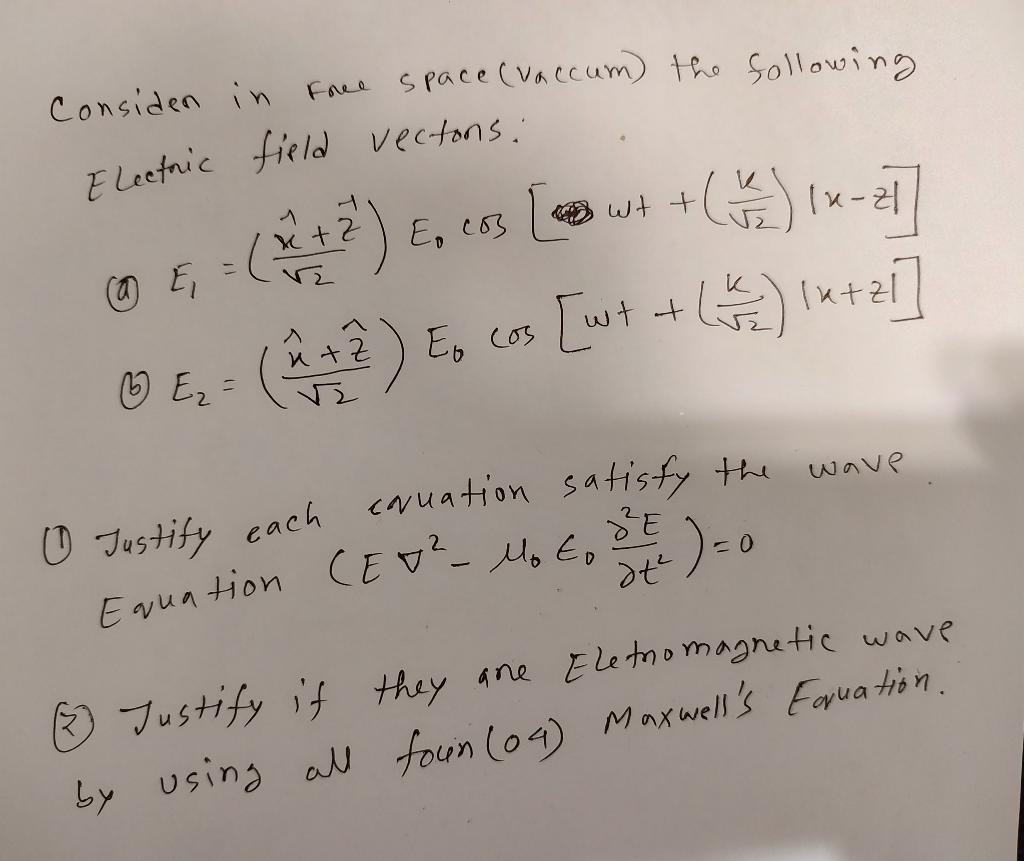 Consider in Free space (vaccum) the following
Electric field vectors:
(a) E₁ = (x̂ + ẑ / √2) E₀ cos [ wt + (k/√2) |x-z|]
(b) E₂ = (x̂ + ẑ / √2) E₀ cos [wt + (k/√2) |x+z|]
(1) Justify each equation satisfy the wave
Equation (E∇² - μ₀ ϵ₀ ∂²E/∂t²) = 0
(2) Justify if they are Eletromagnetic wave
by using all four (04) Maxwell's Equation.